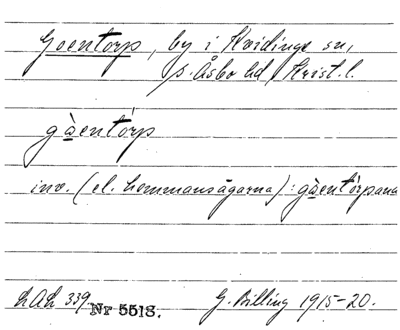 Goentorp, by i Kvidinge sn,
s. Åsbo hd, Krist. l.
gὰentórp
inv. (el. hemmansägarna): gὰentórpana
LAL 339. Nr 5518.
G. Billing 1915-20.